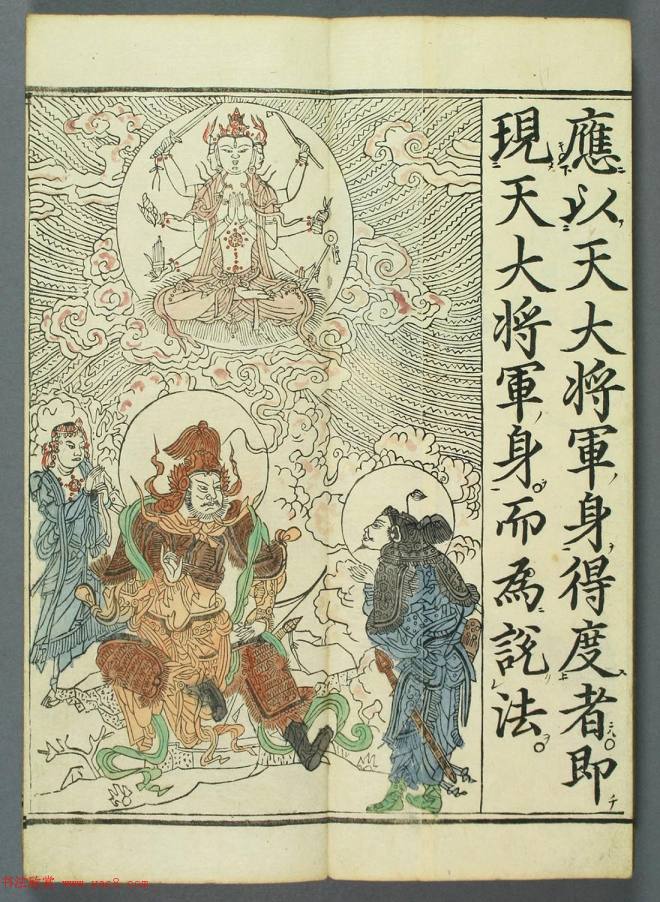 應以天大将軍身得度者即
現天大将軍身而為說法
书法欣赏 www.yac8.com